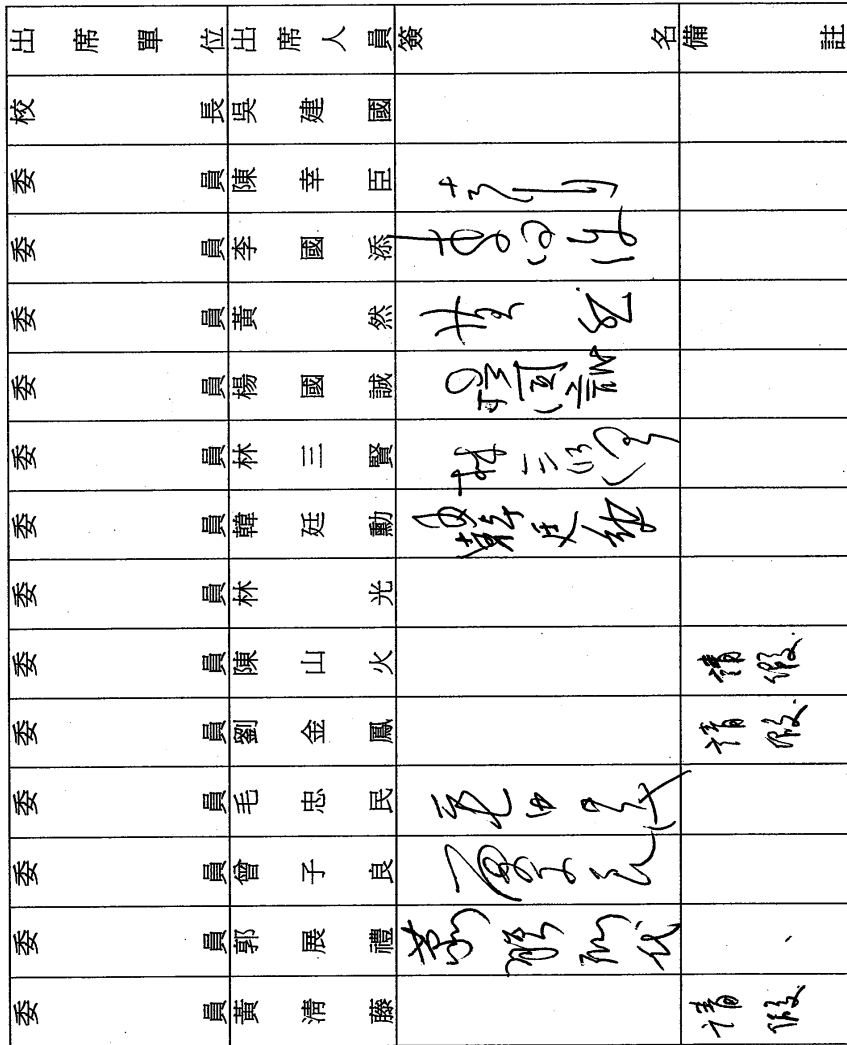 出席單位 出席人員 簽名 備註
校長 吳建國
委員 陳幸臣
委員 李國添
委員 黃然 黃然
委員 楊國誠 楊國誠
委員 林三賢 林三賢
委員 韓廷勳
委員 林光
委員 陳山火 請假
委員 劉金鳳 請假
委員 毛忠民
委員 曾子良
委員 郭展禮
委員 黃清藤 請假